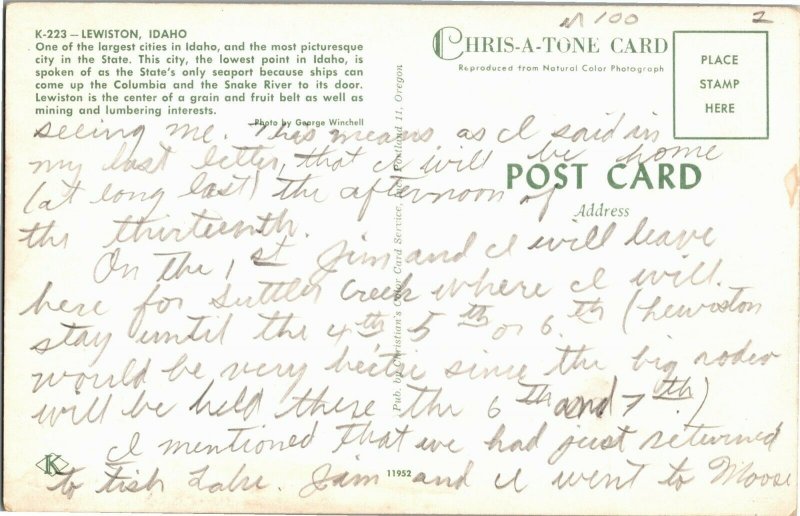 M 100
2
K-223 — LEWISTON, IDAHO
One of the largest cities in Idaho, and the most picturesque
city in the State. This city, the lowest point in Idaho, is
spoken of as the State's only seaport because ships can
come up the Columbia and the Snake River to its door.
Lewiston is the center of a grain and fruit belt as well as
mining and lumbering interests.
Photo by George Winchell
CHRIS-A-TONE CARD
Reproduced from Natural Color Photograph
PLACE
STAMP
HERE
POST CARD
Address
Pub. by Christian's Color Card Service, Inc., Portland 11, Oregon
seeing me. This means as I said in
my last letter, that I will be home
(at long last) the afternoon of
the thirteenth.
On the 1st Jim and I will leave
here for Suttler Creek where I will
stay until the 4th 5th or 6th (Lewiston
would be very hectic since the big rodeo
will be held there the 6th and 7th.)
I mentioned that we had just returned
to Fish Lake. Jim and I went to Moose
K
11952